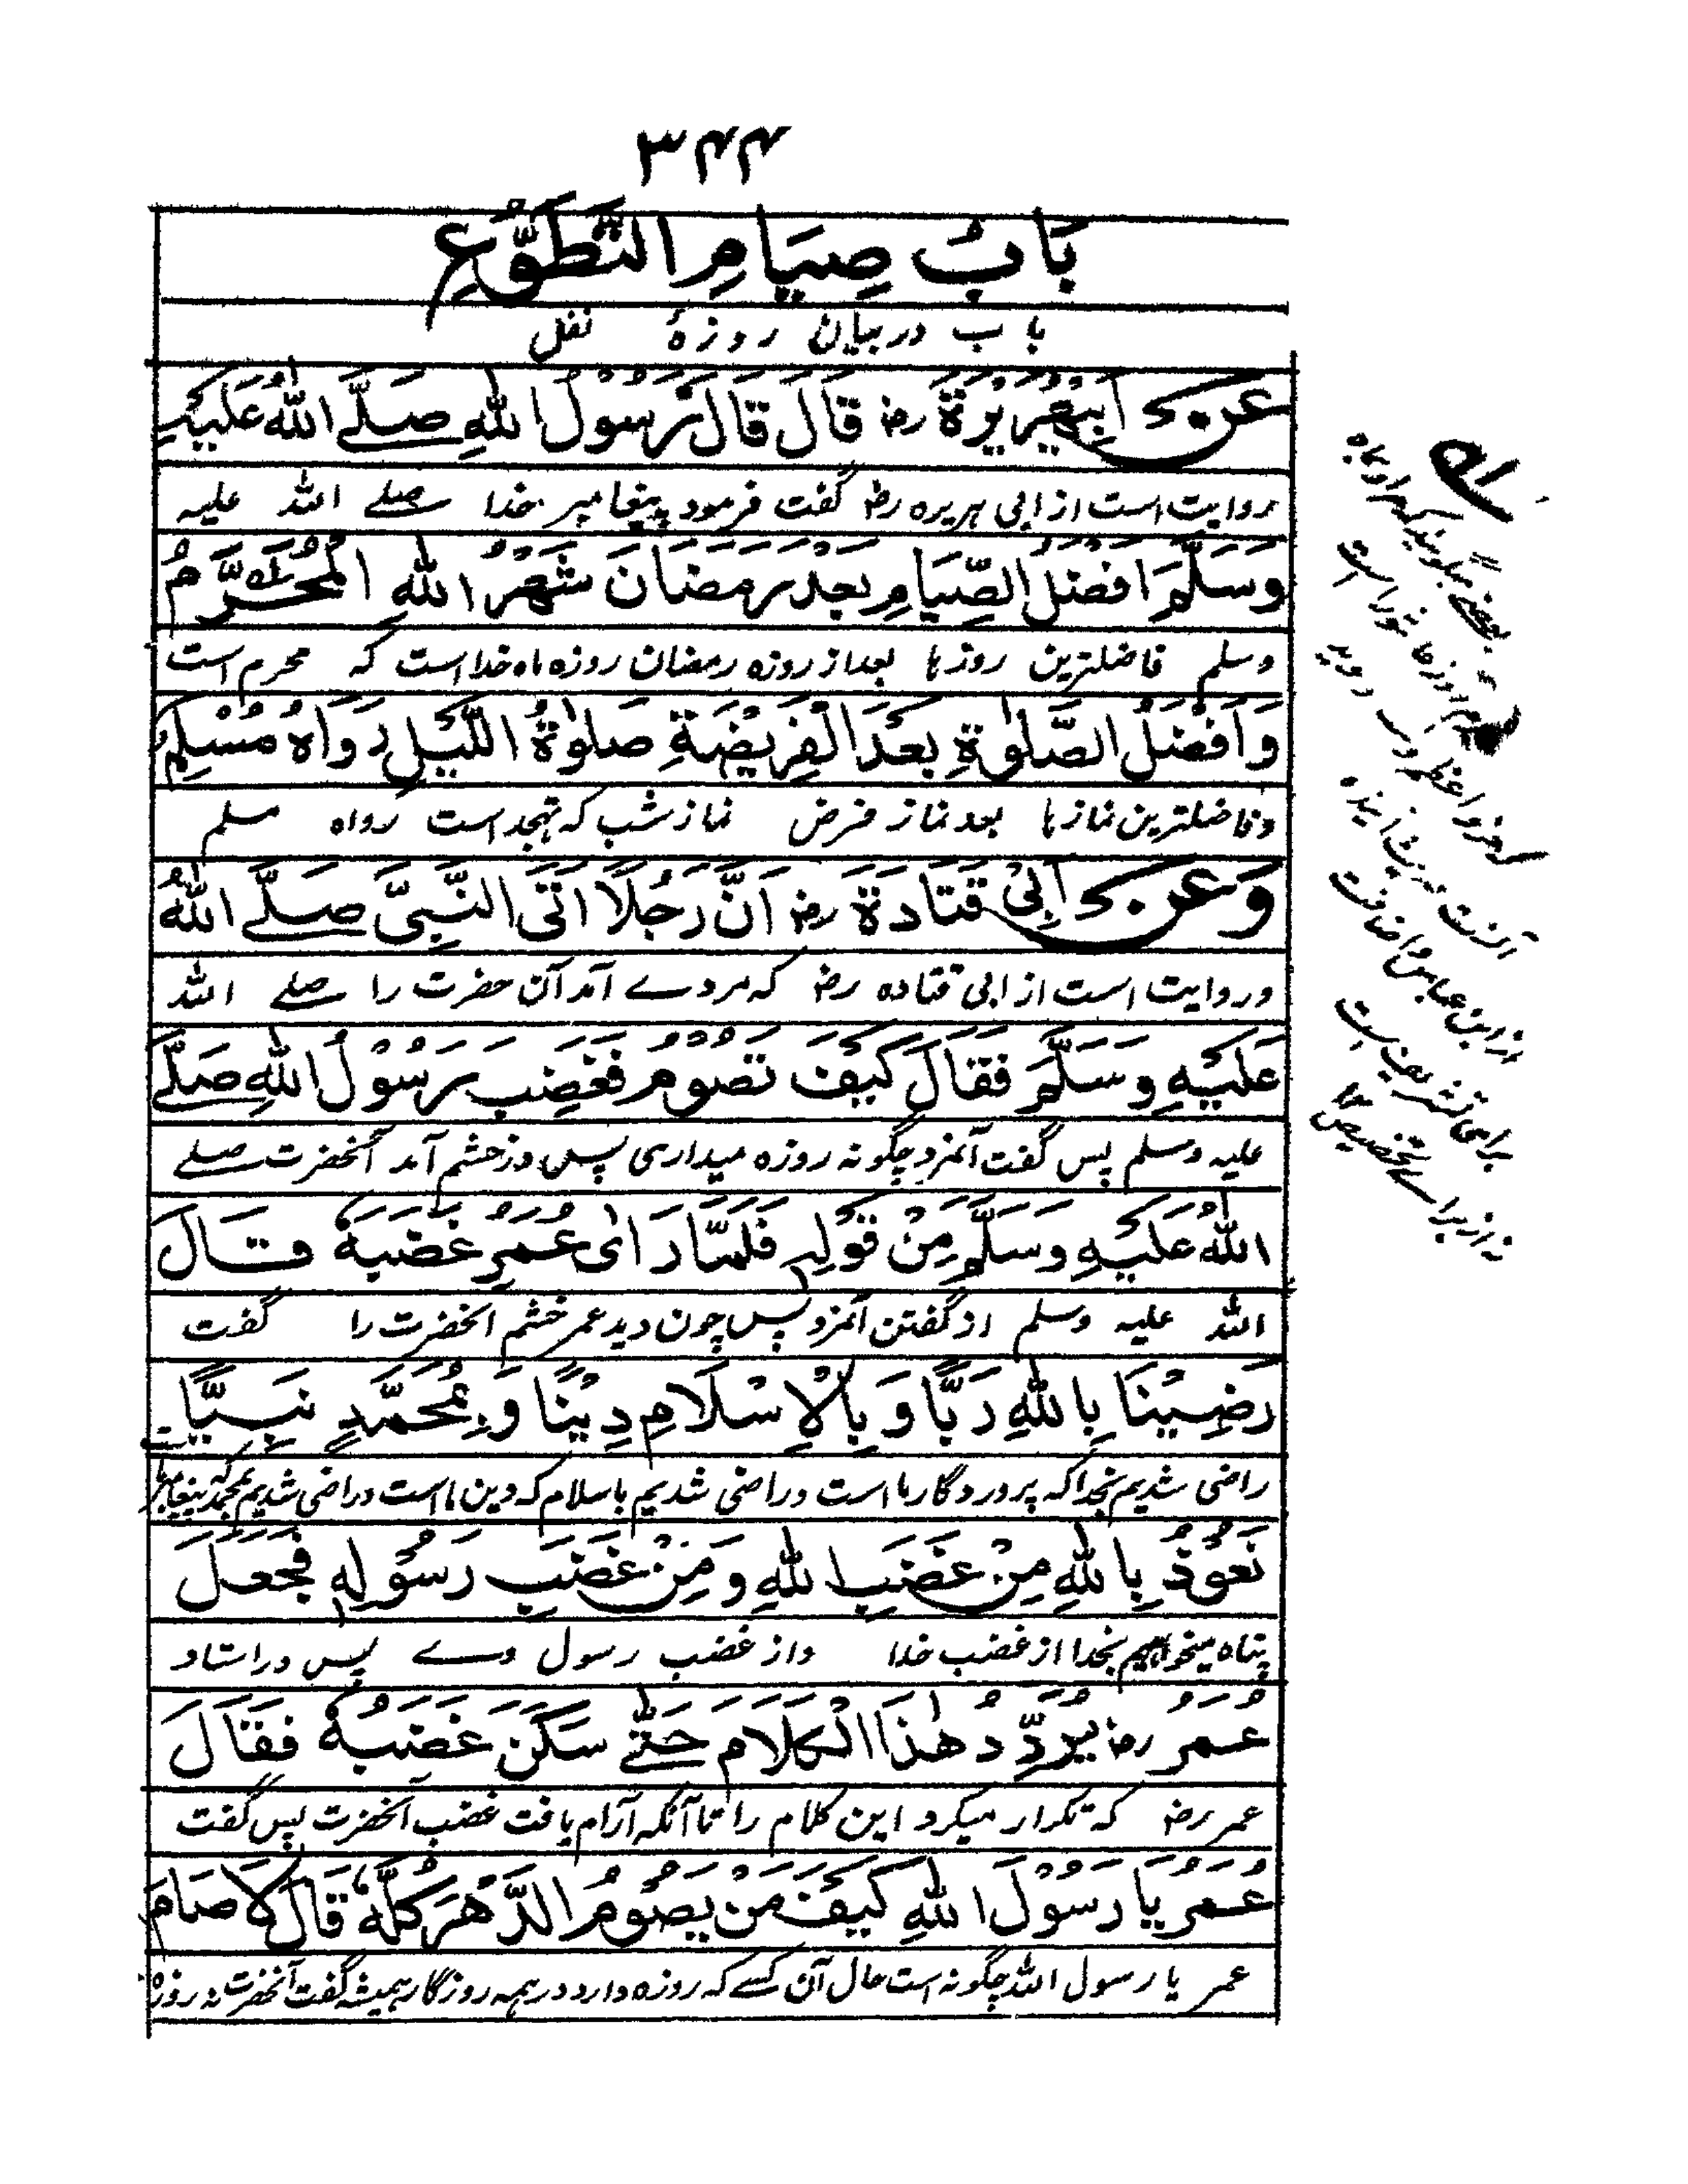 ۳۴۴
بَابُ صِيَامِ التَّطَوُّعِ
باب در بیان روزهٔ نفل
عَنْ اَبِيْ هُرَيْرَةَ رض قَالَ قَالَ رَسُوْلُ اللهِ صَلَّے اللهُ عَلَيْهِ
روایت است از ابی ہریرہ رض گفت فرمود پیغامبر خدا صلے اللہ علیہ
وَسَلَّمَ اَفْضَلُ الصِّيَامِ بَعْدَ رَمَضَانَ شَهْرُ اللهِ الْمُحَرَّمُ
وسلم فاضلترین روزہا بعد از روزہ رمضان روزہ ماہ خداست کہ محرم است
وَاَفْضَلُ الصَّلٰوةِ بَعْدَ الْفَرِيْضَةِ صَلٰوةُ اللَّيْلِ رَوَاهُ مُسْلِمٌ
وفاضلترین نمازہا بعد نماز فرض نماز شب کہ تہجد است رواہ مسلم
وَعَنْ اَبِيْ قَتَادَةَ رض اَنَّ رَجُلًا اَتَى النَّبِيَّ صَلَّے اللهُ
وروایت است از ابی قتادہ رض کہ مردے آمد آن حضرت را صلے اللہ
عَلَيْهِ وَسَلَّمَ فَقَالَ كَيْفَ تَصُوْمُ فَغَضِبَ رَسُوْلُ اللهِ صَلَّے
علیہ وسلم پس گفت آنمرد چگونہ روزہ میداری پس در خشم آمد آنحضرت صلے
اللهُ عَلَيْهِ وَسَلَّمَ مِنْ قَوْلِهٖ فَلَمَّا رَاٰى عُمَرُ غَضَبَهٗ قَالَ
اللہ علیہ وسلم از گفتن آنمرد پس چون دید عمر خشم آنحضرت را گفت
رَضِيْنَا بِاللهِ رَبًّا وَّبِالْاِسْلَامِ دِيْنًا وَّبِمُحَمَّدٍ نَبِيًّا
راضی شدیم بخدا کہ پروردگار ما است وراضی شدیم باسلام کہ دین ما است وراضی شدیم بمحمد کہ پیغامبر
نَعُوْذُ بِاللهِ مِنْ غَضَبِ اللهِ وَمِنْ غَضَبِ رَسُوْلِهٖ فَجَعَلَ
پناہ میخواہیم بخدا از غضب خدا واز غضب رسول وے پس دراستاد
عُمَرُ رض يُرَدِّدُ هٰذَا الْكَلَامَ حَتّٰے سَكَنَ غَضَبُهٗ فَقَالَ
عمر رض کہ تکرار میکرد این کلام را تا آنکہ آرام یافت غضب آنحضرت پس گفت
عُمَرُ يَا رَسُوْلَ اللهِ كَيْفَ مَنْ يَصُوْمُ الدَّهْرَ كُلَّهٗ قَالَ لَا صَامَ
عمر یا رسول اللہ چگونہ است حال آن کسے کہ روزہ دارد در ہمہ روزگار ہمیشہ گفت آنحضرت نہ روزہ
بعضے میگویند کہ مراد باہ
عاشورا است
از ابن عباس
برای تشریف است
نہ از برائے تخصیص